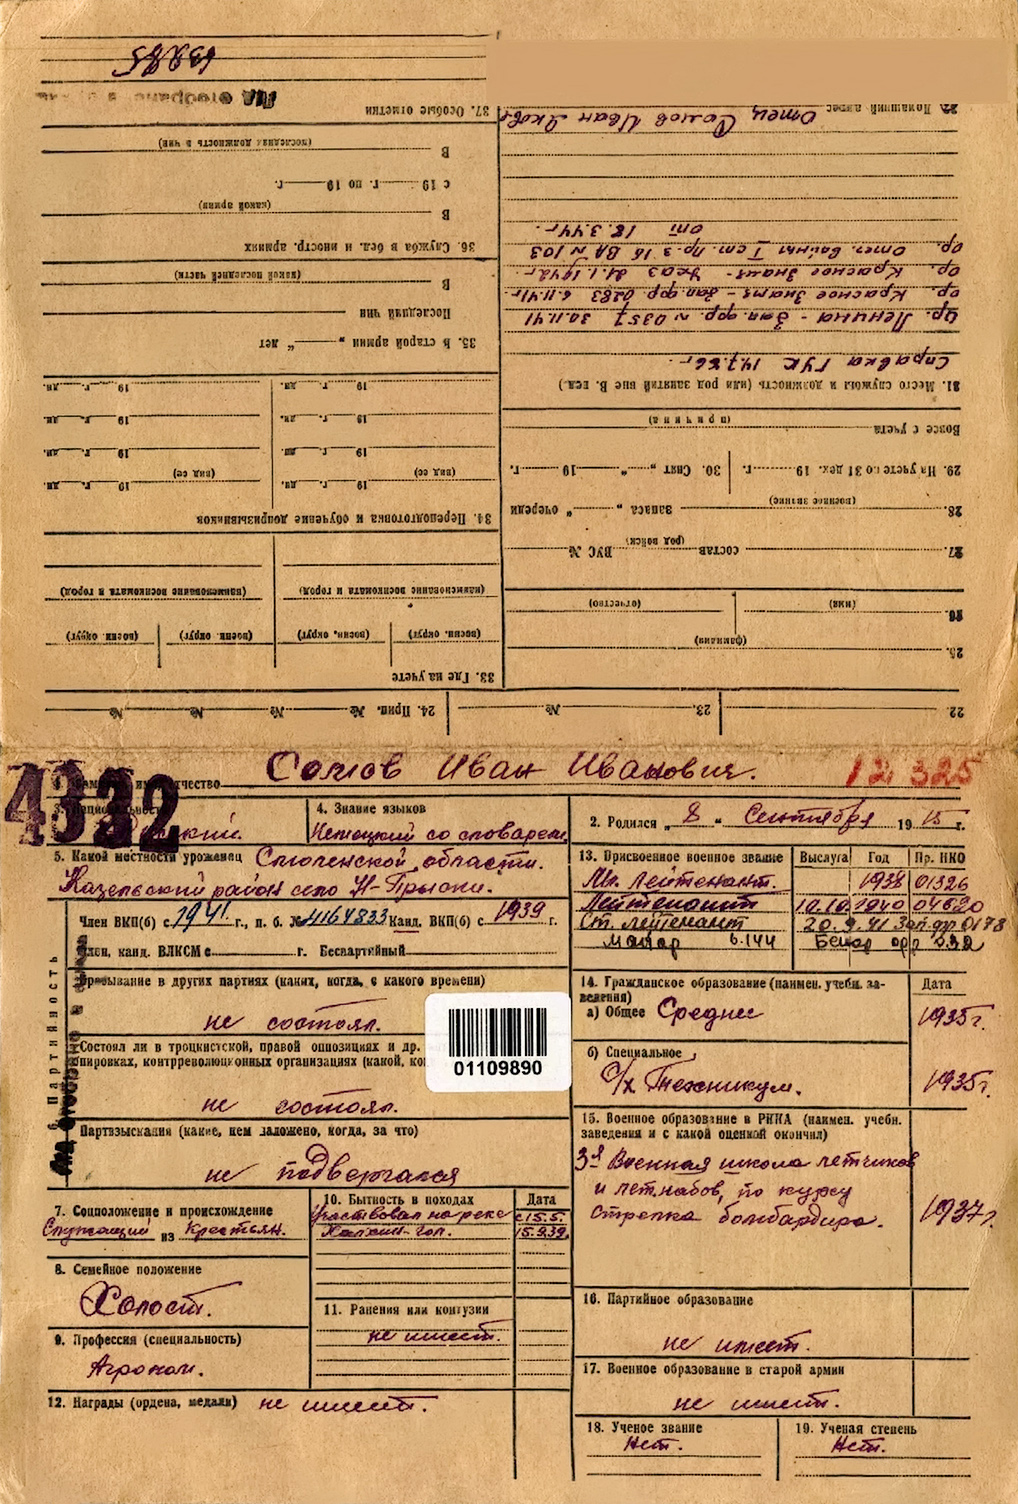 43224
1. Фамилия, имя, отчество Сомов Иван Иванович.
12325
3. Национальность
4. Знание языков
Немецкий со словарем
2. Родился „ 8 “ Сентября 1915 г.
5. Какой местности уроженец Смоленской области.
Козельский район село Н-Прыски.
6. Партийность
Член ВКП(б) с 1941 г., п. б. № 4164833 Канд. ВКП(б) с 1939 г.
Член, канд. ВЛКСМ с г. Беспартийный
Пребывание в других партиях (каких, когда, с какого времени)
не состоял.
Состоял ли в троцкистской, правой оппозициях и др.
пировках, контрреволюционных организациях (какой,
01109890
не состоял.
Партвзыскания (какие, кем заложено, когда, за что)
не подвергался
7. Соцположение и происхождение
Служащий из Крестьян.
8. Семейное положение
Холост.
9. Профессия (специальность)
Агроном.
10. Бытность в походах Дата
Участвовал на реке с 15.5.
Халхин-гол. 15.9.39.
11. Ранения или контузии
не имеет.
12. Награды (ордена, медали) не имеет.
13. Присвоенное военное звание Выслуга Год Пр. НКО
Мл. лейтенант. 1938 01326
Лейтенант 10.10.1940 04620
Ст. лейтенант 20.9.41 Зап.фр 0178
Майор
14. Гражданское образование (наимен. учебн. за-
ведения) Дата
а) Общее Среднее 1935 г.
б) Специальное
С/х Техникум. 1935 г.
15. Военное образование в РККА (наимен. учебн.
заведения и с какой оценкой окончил)
3я Военная школа летчиков
и летнабов, по курсу
стрелка бомбардира. 1937 г.
16. Партийное образование
не имеет.
17. Военное образование в старой армии
не имеет.
18. Ученое звание
Нет.
19. Ученая степень
Нет.
22. 23. № 24. Прип. № № № №
25.
(фамилия)
26.
(имя) (отчество)
27. состав (род войск) ВУС №
28. запаса „ “ очереди
(военное звание)
29. На учете по 31 дек. 19 г. 30. Снят „ “ 19 г.
Вовсе с учета
(причина)
31. Место службы и должность (или род занятий вне В. вед.)
Справка ГУК 14.7.66 г.
Ор. Ленина - Зап. фр. № 0357 30.11.41
Ор. Красное Знамя - Зап. фр 0283 6.11.41 г.
Ор. Красное Знамя - Указ 21.1.1942 г.
Ор. Отеч. войны I ст. Пр. 3 16 ВА № 103
от 18.3.44 г.
32. Домашний адрес Отец Сомов Иван Яковл
33. Где на учете
(воен. округ) (воен. округ) (воен округ) (воен округ)
(наименование военкомата и город) (наименование военкомата и город)
34. Переподготовка и обучение допризывников
19 г. дн. 19 г. дн.
(вид ее) (вид ее)
19 г. дн. 19 г. дн.
19 г. дн. 19 г. дн.
19 г. дн. 19 г. дн.
35. В старой армии „ “ лет
Последний чин
В
(какой последней части)
36. Служба в бел. и иностр. армиях
В
(какой армии)
с 19 г. по 19 г.
В
(последняя должность и чин)
37. Особые отметки